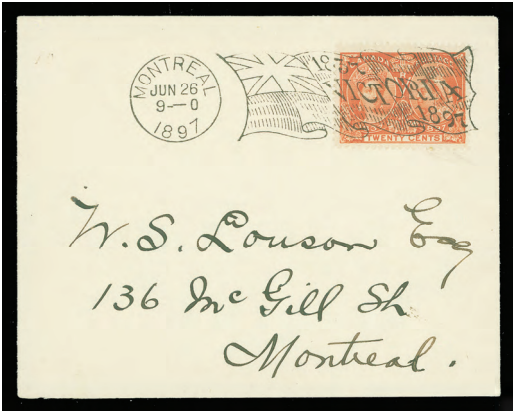 MONTREAL
JUN 26
9—0
1897
VICTORIA
1897
TWENTY CENTS
W. S. Louson Esq
136 McGill St.
Montreal.